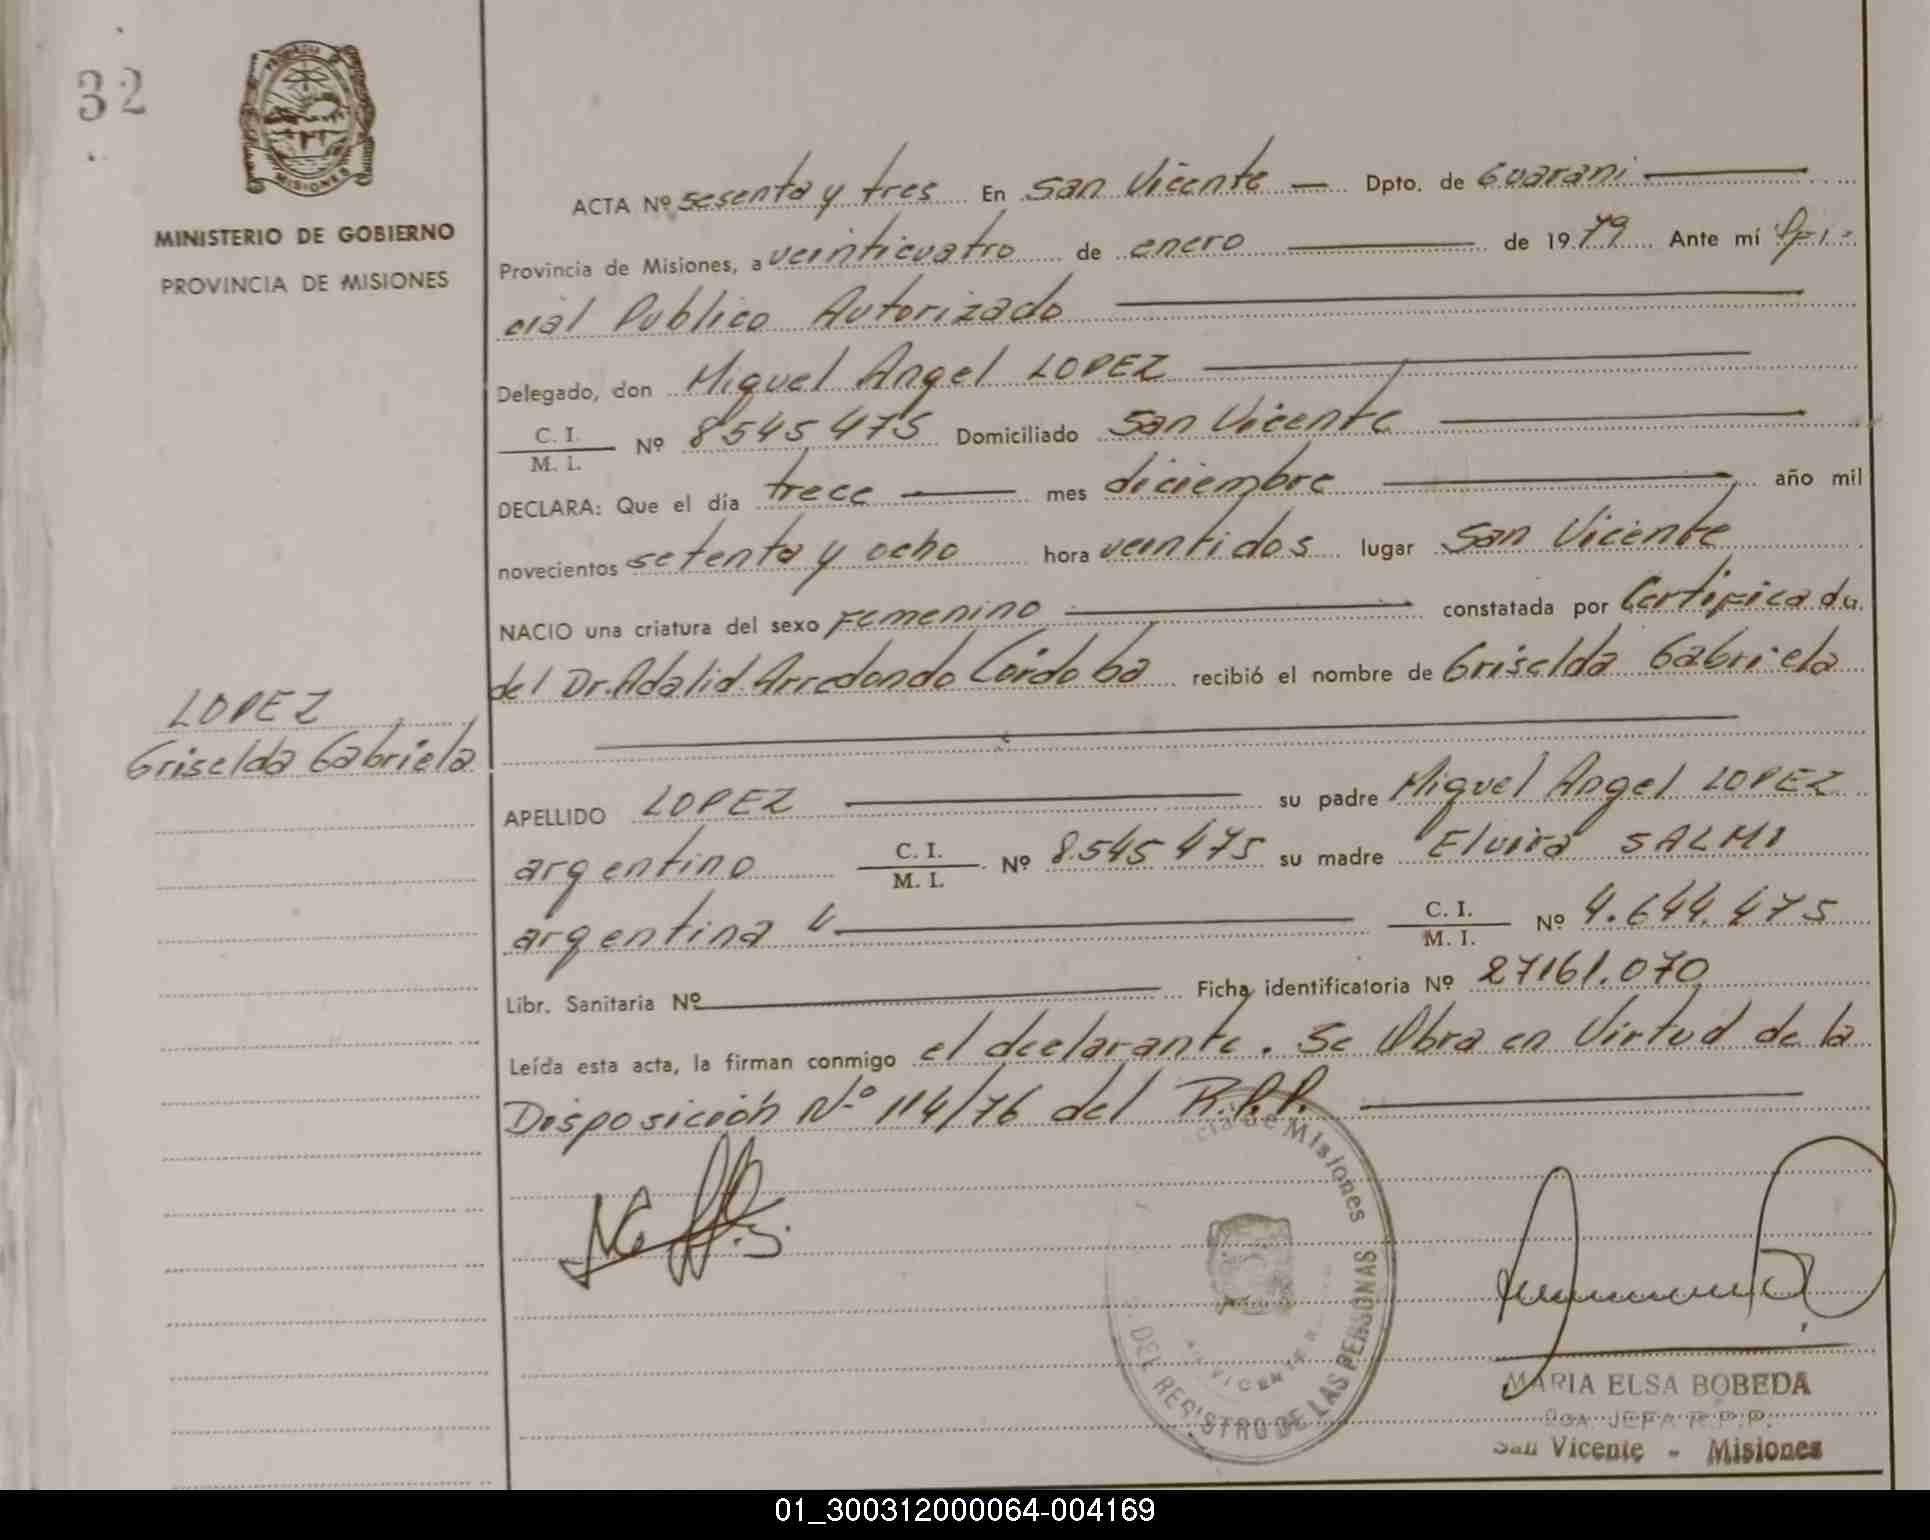 32
MISIONES
MINISTERIO DE GOBIERNO
PROVINCIA DE MISIONES
LOPEZ
Griselda Gabriela
ACTA Nº sesenta y tres En San Vicente Dpto. de Guarani
Provincia de Misiones, a veinticuatro de enero de 1979 Ante mí Ofi-
cial Publico Autorizado
Delegado, don Miguel Angel LOPEZ
C. I.
M. I. Nº 8545475 Domiciliado San Vicente
DECLARA: Que el día trece mes diciembre año mil
novecientos setenta y ocho hora veintidos lugar San Vicente
NACIO una criatura del sexo Femenino constatada por Certificado
del Dr. Adalid Arredondo Córdoba recibió el nombre de Griselda Gabriela
APELLIDO LOPEZ su padre Miguel Angel LOPEZ
argentino C. I.
M. I. Nº 8.545.475 su madre Elvira SALMI
argentina C. I.
M. I. Nº 4.644.475
Libr. Sanitaria Nº Ficha identificatoria Nº 27161.070
Leída esta acta, la firman conmigo el declarante. Se Obra en Virtud de la
Disposición Nº 114/76 del R.P.P.
cia de Misiones
DEL REGISTRO DE LAS PERSONAS
VICENTE
MARIA ELSA BOBEDA
JEFA R.P.P.
San Vicente - Misiones
01_300312000064-004169